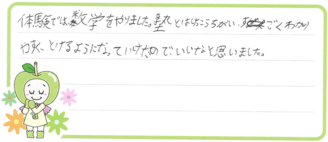 体験では、数学をやりました。塾とはけっこうちがい、すごくわかり
やすく、とけるようになっていけたのでいいなと思いました。